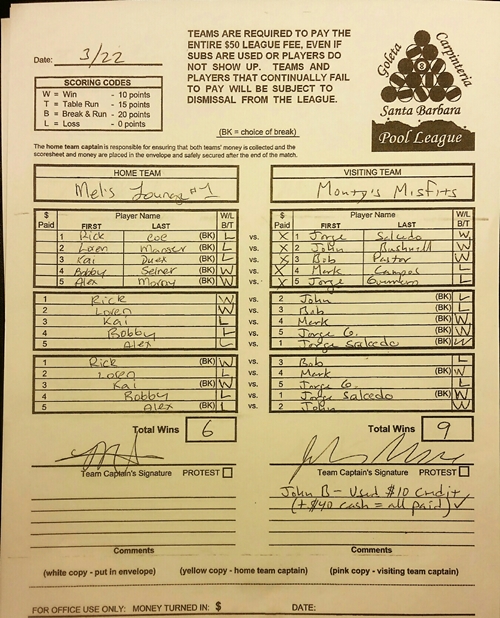 Date: 3/22
TEAMS ARE REQUIRED TO PAY THE
ENTIRE $50 LEAGUE FEE, EVEN IF
SUBS ARE USED OR PLAYERS DO
NOT SHOW UP. TEAMS AND
PLAYERS THAT CONTINUALLY FAIL
TO PAY WILL BE SUBJECT TO
DISMISSAL FROM THE LEAGUE.
(BK = choice of break)
SCORING CODES
W = Win - 10 points
T = Table Run - 15 points
B = Break & Run - 20 points
L = Loss - 0 points
Goleta Carpinteria
8
Santa Barbara
Pool League
The home team captain is responsible for ensuring that both teams' money is collected and the
scoresheet and money are placed in the envelope and safely secured after the end of the match.
HOME TEAM VISITING TEAM
Mel's Lounge #1 Monty's Misfits
$ Paid Player Name FIRST LAST W/L B/T $ Paid Player Name FIRST LAST W/L B/T
1 Rick Coe (BK) L vs. X 1 Jorge Salcedo W
2 Loren (BK) L vs. X 2 John Bushnell W
3 Kai (BK) L vs. X 3 Bob Pastor W
4 Bobby Seiner (BK) W vs. X 4 Mark Campos L
5 Alex (BK) W vs. X 5 Jorge L
1 Rick W vs. 2 John (BK) L
2 Loren W vs. 3 Bob (BK) L
3 Kai L vs. 4 Mark (BK) W
4 Bobby L vs. 5 Jorge G. (BK) W
5 Alex L vs. 1 Jorge Salcedo (BK) W
1 Rick (BK) W vs. 3 Bob L
2 Loren L vs. 4 Mark (BK) W
3 Kai (BK) W vs. 5 Jorge G. L
4 Bobby L vs. 1 Jorge Salcedo (BK) W
5 Alex (BK) L vs. 2 John W
Total Wins 6 Total Wins 9
Team Captain's Signature PROTEST Team Captain's Signature PROTEST
John B - Used $10 Credit
(+ $40 cash = all paid) ✓
Comments Comments
(white copy - put in envelope) (yellow copy - home team captain) (pink copy - visiting team captain)
FOR OFFICE USE ONLY: MONEY TURNED IN: $ DATE: